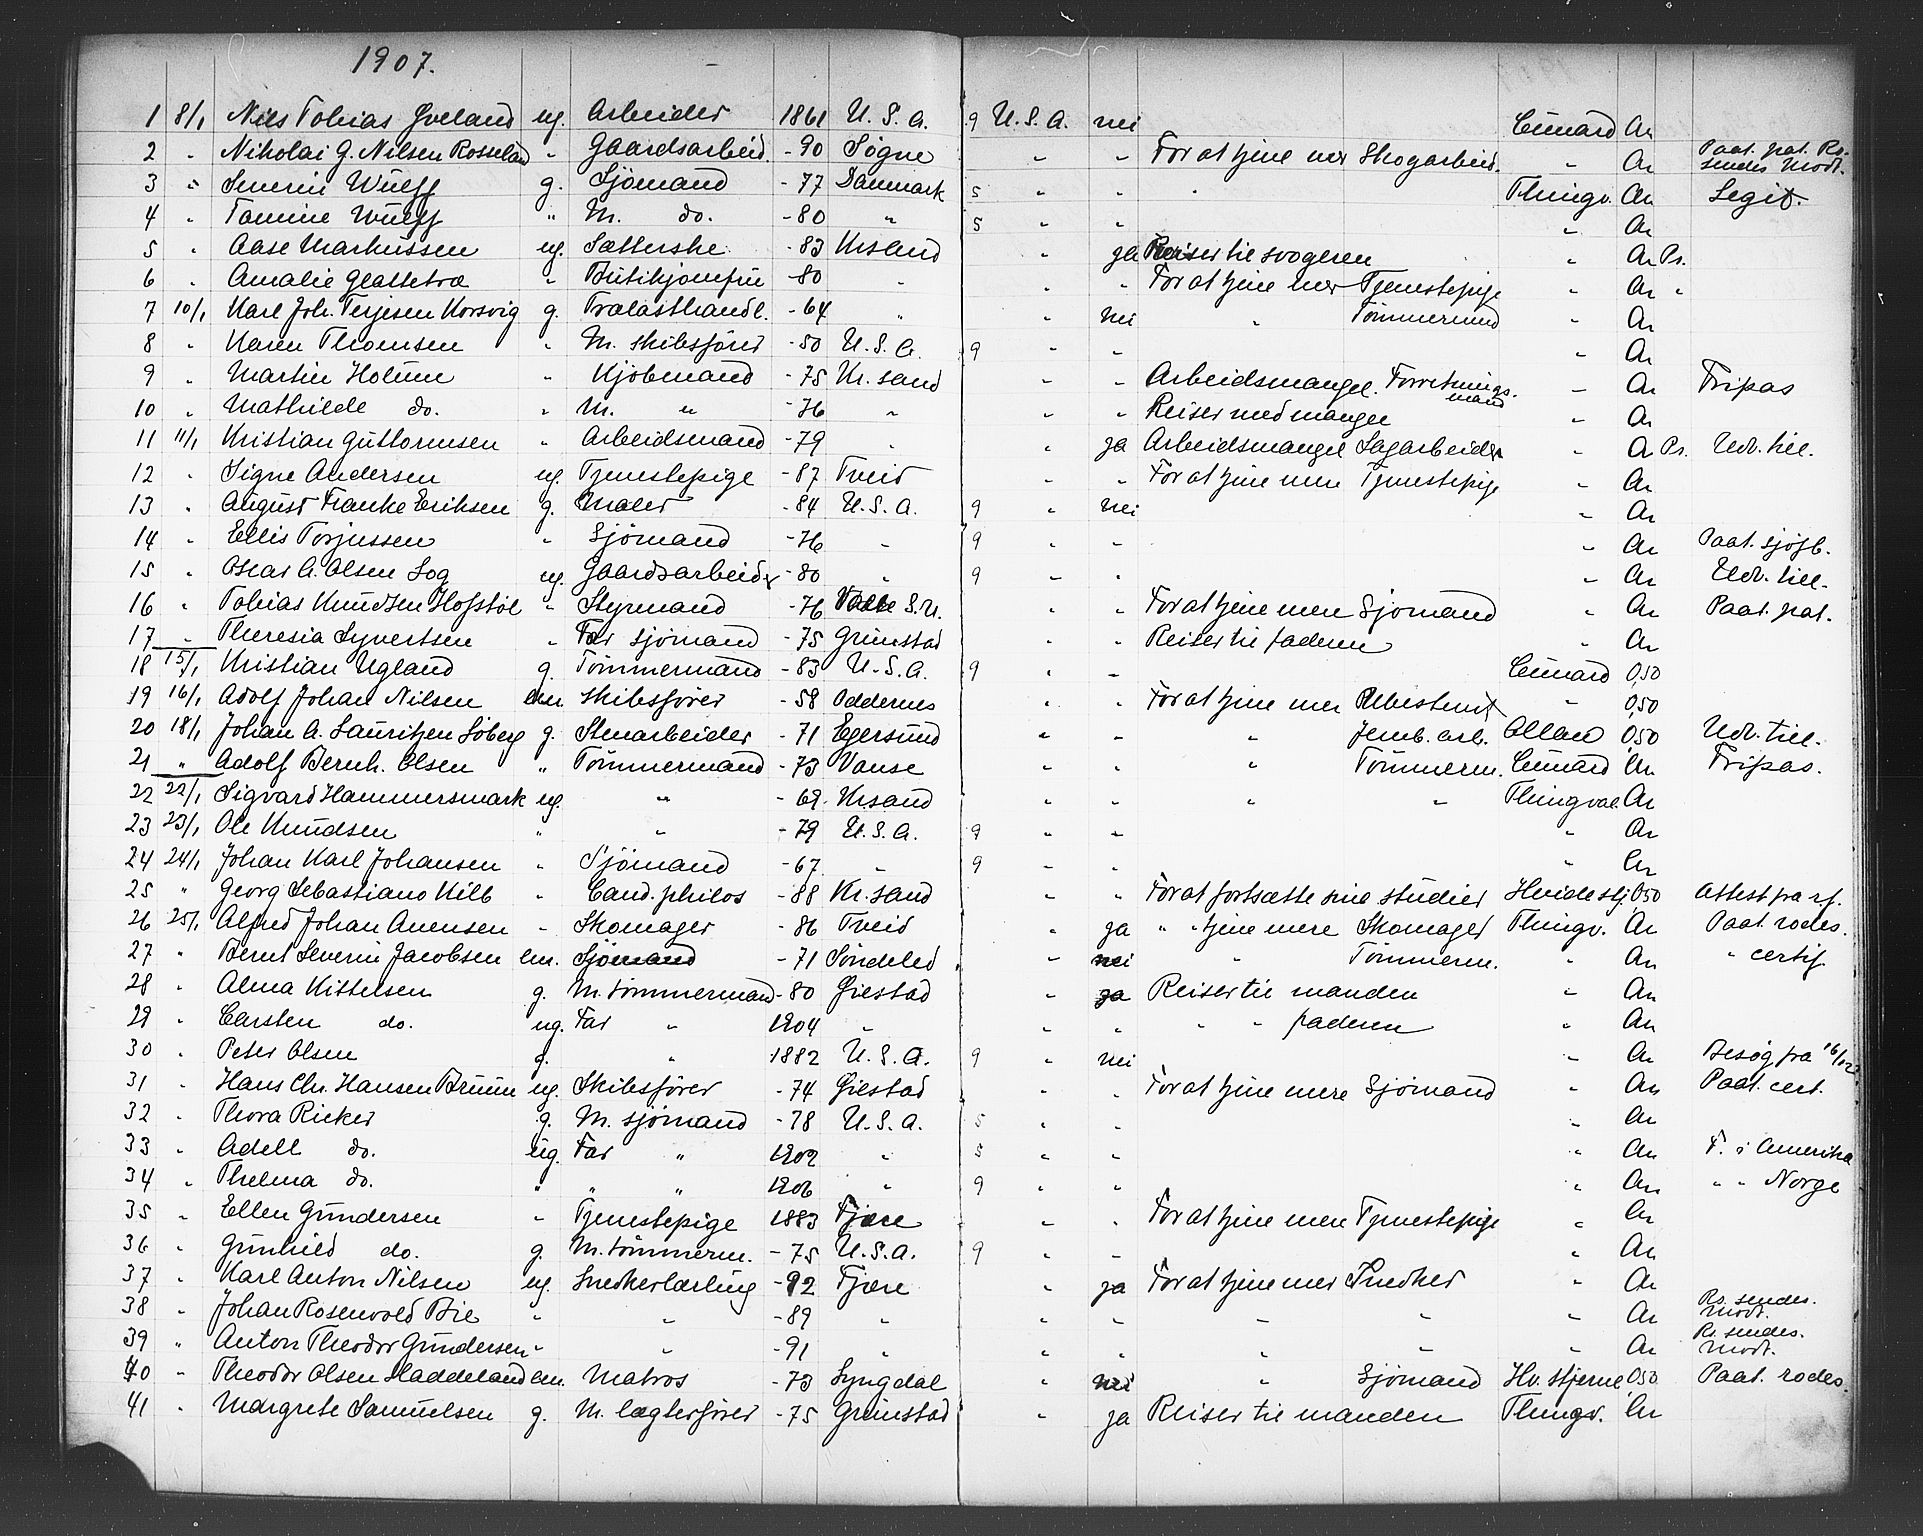 1907.
1 8/1 Nils Tobias Gveland ug. Arbeider 1861 U. S. A. 9 U. S. A. nei Cunard An
2 " Nikolai G. Nilsen Rosseland " Gaardsarbeid. -90 Søgne " " For at tjene mer Skogarbeid. " An Paat. pat. Rs. sendes Modt.
3 " Severin Wulff g. Sjömand -77 Danmark 5 " " " Thingv. An Legit.
4 " Tomine Wulff " M. do. -80 " 5 " " " An
5 " Aase Markussen ug. Sætterske -83 Krsand " ja Reiser til svogeren " An Pr.
6 " Amalie Glattetræ " Butikjomfru -80 " " " For at tjene mer Tjenestepige " An "
7 10/1 Karl Joh. Terjesen Korsvig g. Trælasthandl. -64 " " nei " Tömmermand " An
8 " Karen Thomsen " M. skibsförer -50 U. S. A. 9 " " " An
9 " Martin Holum " Kjöbmand -75 Kr.sand " " Arbeidsmangel. Forretningsmand " An Fripas
10 " Mathilde do. " M. " -76 " " " Reiser med mangel " An
11 11/1 Kristian Guttormsen " Arbeidsmand -79 " " ja Arbeidsmangel Sagarbeider " An Pr. Udv. till.
12 " Signe Andersen ug. Tjenestepige -87 Tveid " " For at tjene mere Tjenestepige " An
13 " August Franke Eriksen g. Maler -84 U. S. A. 9 " nei " An
14 " Ellis Torjussen " Sjömand -76 " 9 " " " An Paat. sjøfb.
15 " Oscar A. Olsen Log ug. Gaardsarbeider -80 " 9 " " " An Udv. till.
16 " Tobias Knudsen Hofstöl " Styrmand -76 Valle S.n. " " For at tjene mere Sjömand " An Paat. pat.
17 " Theresia Syvertsen " Far sjömand -75 Grimstad " " Reiser til faderen " An
18 15/1 Kristian Ugland g. Tömmermand -83 U. S. A. 9 " " Cunard 0,50
19 16/1 Adolf Johan Nilsen em. Skibsförer -58 Oddernes " " For at tjene mer Ubestemt " 0,50
20 18/1 Johan A. Lauritzen Söberg g. Stenarbeider -71 Egersund " " " Jernb. arb. Allan 0,50 Udv. till.
21 " Adolf Bernh. Olsen " Tömmermand -73 Vanse " " " Tömmerm. Cunard An Fripas.
22 22/1 Sigvard Hammersmark ug. " -69. Krsand " " " " Thingval. An
23 23/1 Ole Knudsen " " -79 U. S. A. 9 " " " An
24 24/1 Johan Karl Johansen " Sjömand -67 " 9 " " " An
25 " Georg Sebastiano Kilb " Cand. philos -88 Kr.sand " " For at fortsætte sine studier Hvide stj. 0,50 Attest fra rf.
26 25/1 Alfred Johan Anensen " Skomager -86 Tveid " ja " " tjene mere Skomager Thingv. An Paat. rodes.
27 " Bernt Severin Jacobsen em. Sjömand -71 Söndeled " nei " Tömmerm. " An " certif.
28 " Alma Kittelsen g. M. tömmermand -80 Øiestad " ja Reiser til manden " An
29 " Carsten do. ug. Far " 1904 " " " " " faderen " An
30 " Peter Olsen g. " 1882 U. S. A. 9 " nei " An Besøg fra 16/12
31 " Hans Chr. Hansen Bruun ug. Skibsförer -74 Øiestad " " For at tjene mere Sjömand " An Paat. cert.
32 " Thora Ricker g. M. sjömand -78 U. S. A. 5 " " " An
33 " Adell do. ug. Far " 1902 " 5 " " " An F. i Amerika
34 " Thelma do. " " " 1906 " 9 " " " An " " Norge
35 " Ellen Gundersen " Tjenestepige 1883 Fjære " " For at tjene mere Tjenestepige " An
36 " Gunhild do. g. M. tömmerm. -75 U. S. A. 9 " " " An
37 " Karl Anton Nilsen ug. Snedkerlærling -92 Fjære " ja For at tjene mer Snedker " An
38 " Johan Rosenvold Bie " " -89 " " " " " " An Rs. sendes. Modt.
39 " Anton Theodor Gundersen " " -91 " " " " " " An Rs. sendes. Modt.
40 " Theodor Olsen Haddeland em. Matros -73 Lyngdal " nei " Sjömand Hv. stjerne 0,50 Paat. rodes.
41 " Margrete Samuelsen g. M. lægterförer -75 Grimstad " ja Reiser til manden Thingv. An